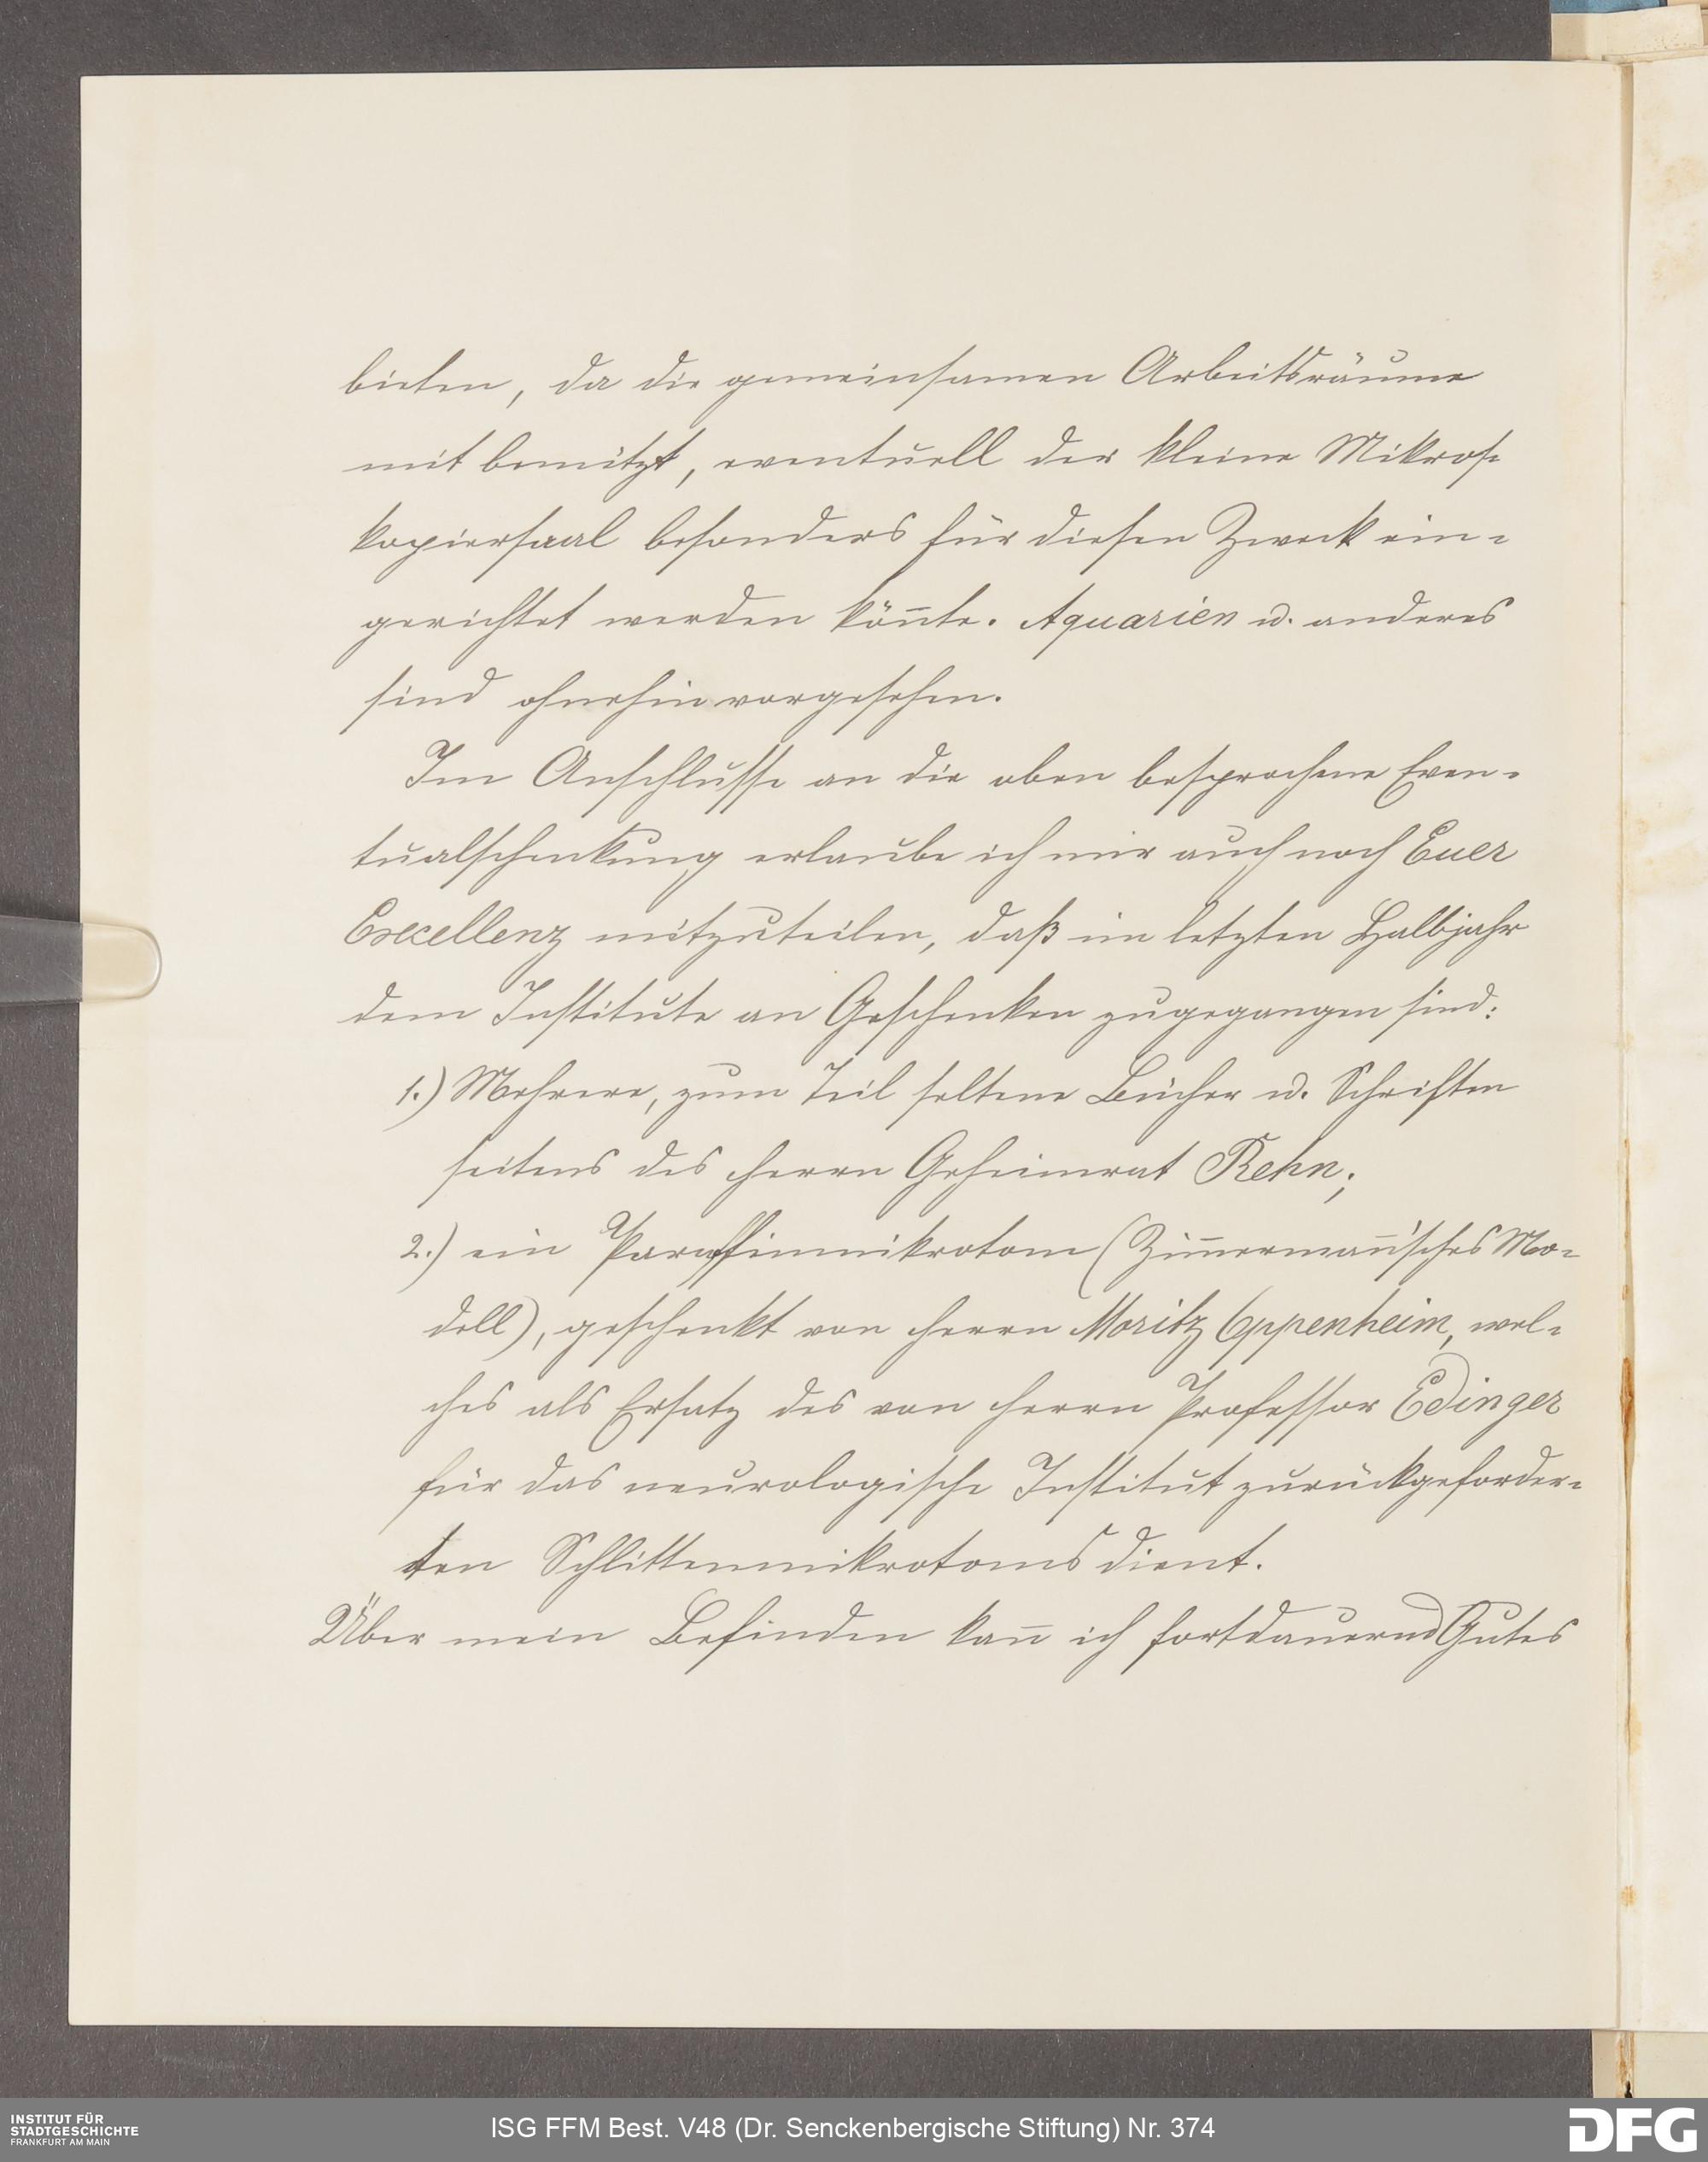 bieten, da die gemeinsamen Arbeitsräume
mit benützt, eventuell der kleine Mikros-
kopiersaal besonders für diesen Zweck ein-
gerichtet werden kön̄te. Aquarien u. anderes
sind ohnehin vorgesehen.
Im Anschlusse an die oben besprochene Even-
tualschenkung erlaube ich mir auch noch Euer
Excellenz mitzuteilen, daß im letzten Halbjahr
dem Institute an Geschenken zugegangen sind:
1.) Mehrere, zum Teil seltene Bücher u. Schriften
seitens des Herrn Geheimrat Rehn;
2.) ein Paraffinmikrotom (Zim̄erman̄'sches Mo-
dell), geschenkt von Herrn Moritz Oppenheim, wel-
ches als Ersatz des von Herrn Professor Edinger
für das neurologische Institut zurückgeforder-
ten Schlittenmikrotoms dient.
Über mein Befinden kan̄ ich fortdauernd Gutes
INSTITUT FÜR
STADTGESCHICHTE
FRANKFURT AM MAIN
ISG FFM Best. V48 (Dr. Senckenbergische Stiftung) Nr. 374
DFG